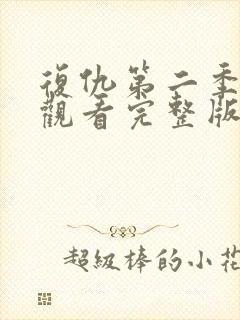 復仇第二季
觀看完整版
超級棒的小花